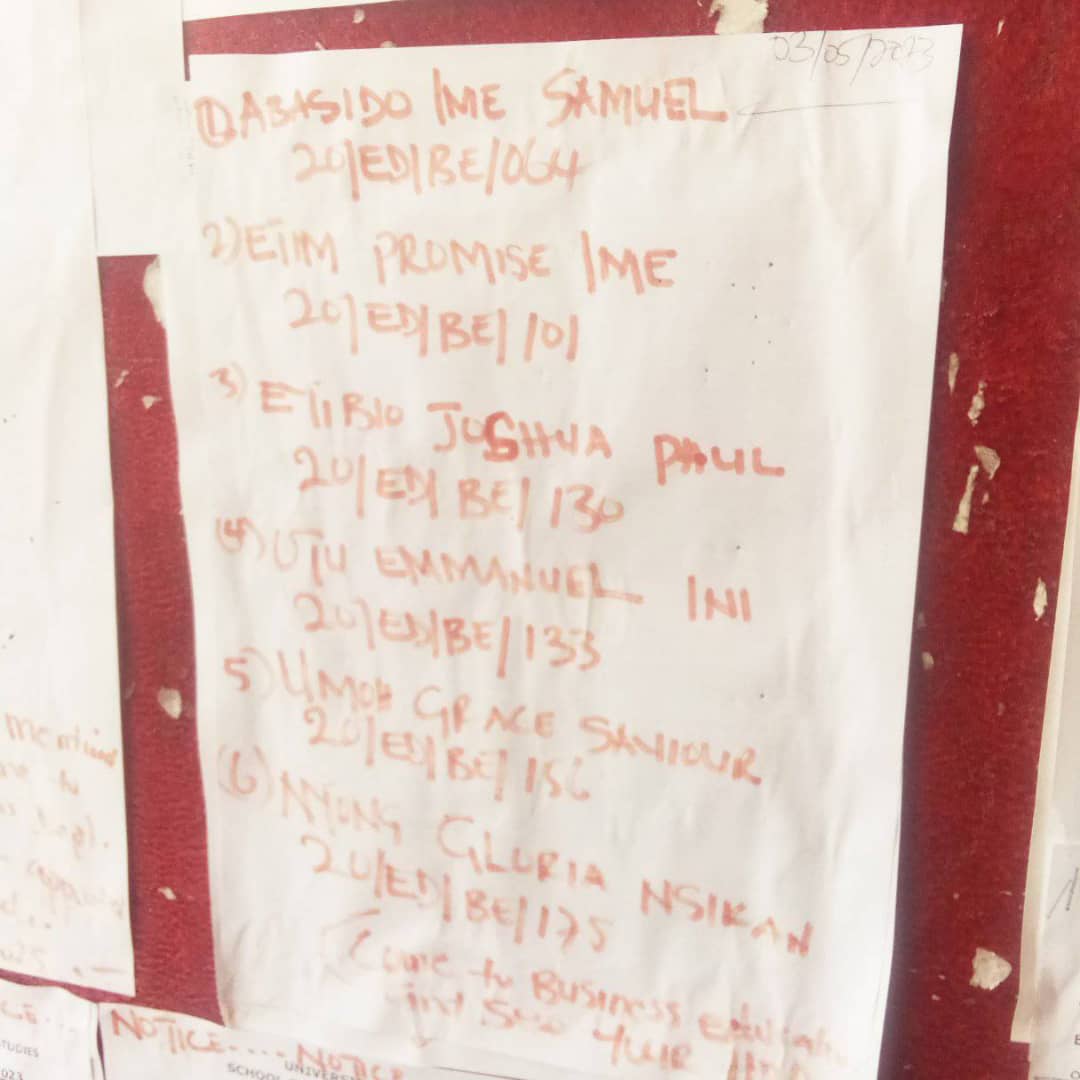 03/05/2023
① ABASIDO IME SAMUEL
20/ED/BE/064
2) ETIM PROMISE IME
20/ED/BE/101
3) ETIBIO JOSHUA PAUL
20/ED/BE/130
(4) UTU EMMANUEL INI
20/ED/BE/133
5) UMOH GRACE SAVIOUR
20/ED/BE/156
(6) NYONG GLORIA NSIKAN
20/ED/BE/175
Come to Business
and See Your
NOTICE.... NOTICE
SCHOOL